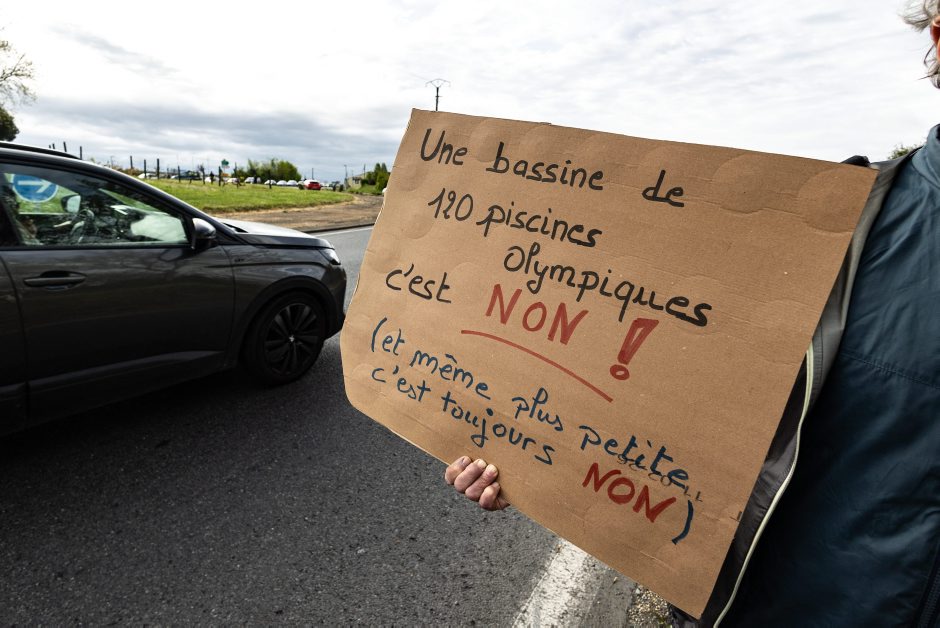 Une bassine de
120 piscines
Olympiques
c'est NON !
(et même plus petite
c'est toujours NON)